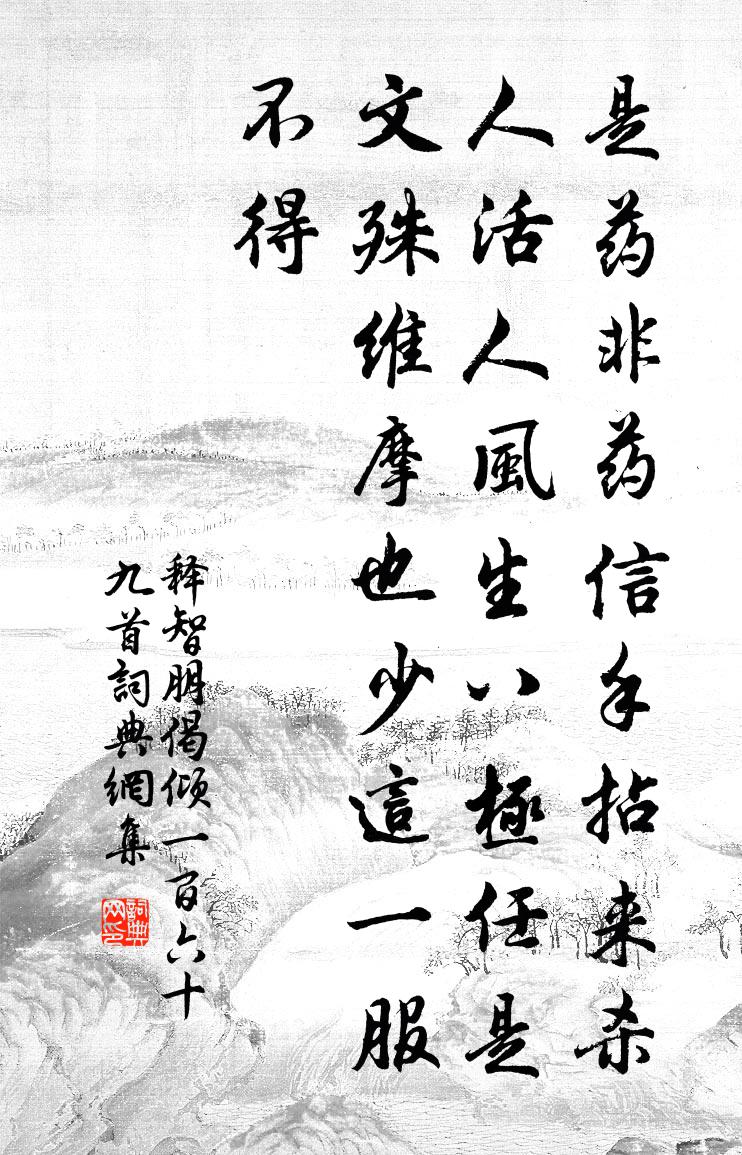 是药非药信手拈来杀
人活人風生八極任是
文殊維摩也少這一服
不得
释智朋偈倾一百六十
九首詞典網集
詞典网印